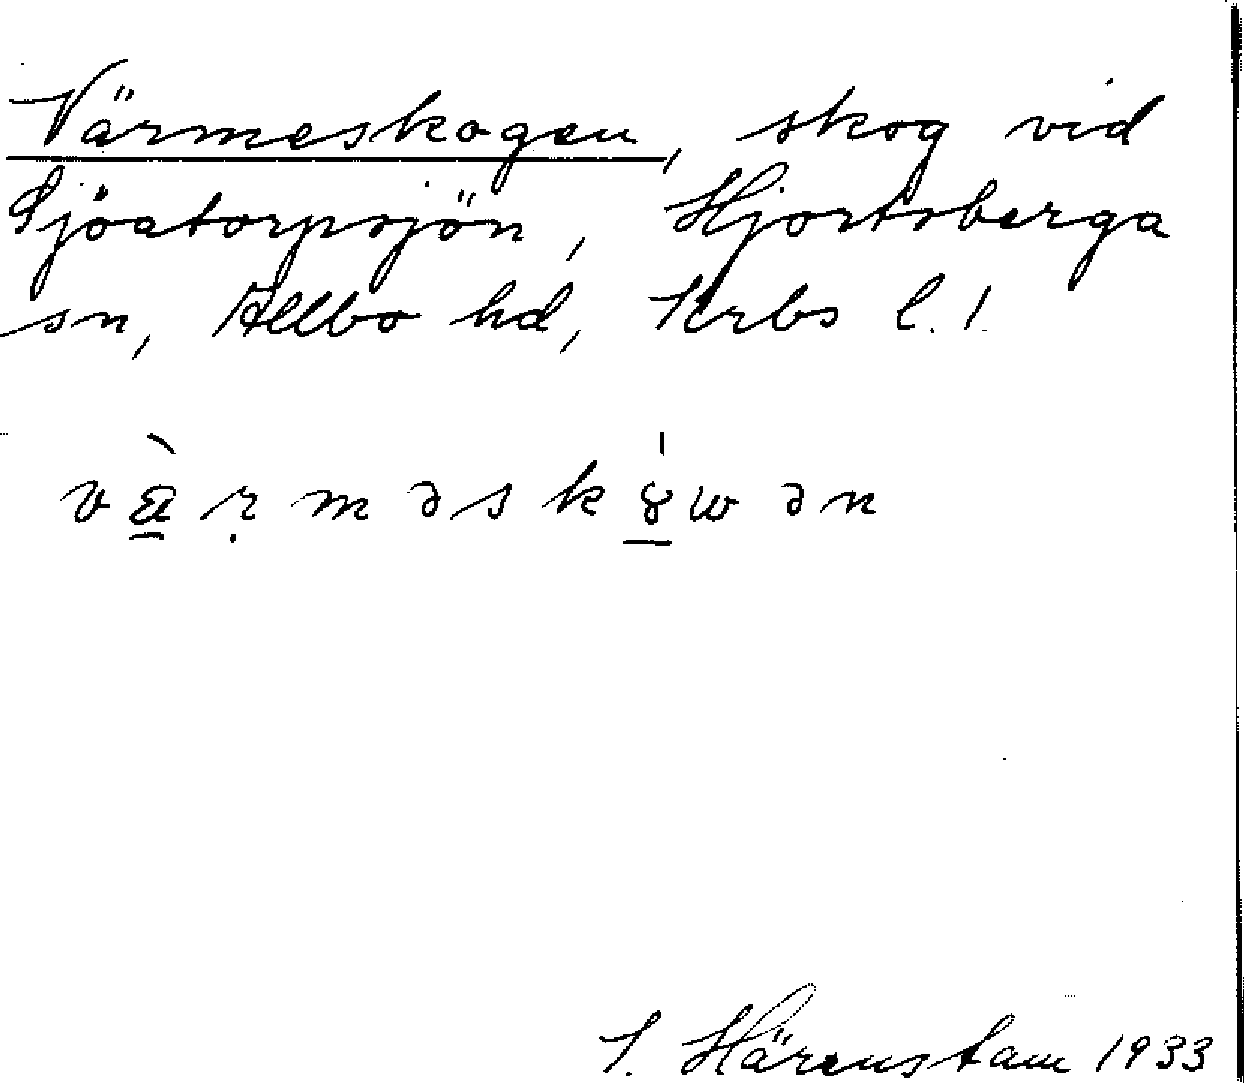 Värmeskogen, skog vid
Sjöatorpsjön, Hjortsberga
sn, Allbo hd, Krbs l.
värməskɤwən
Härenstam 1933